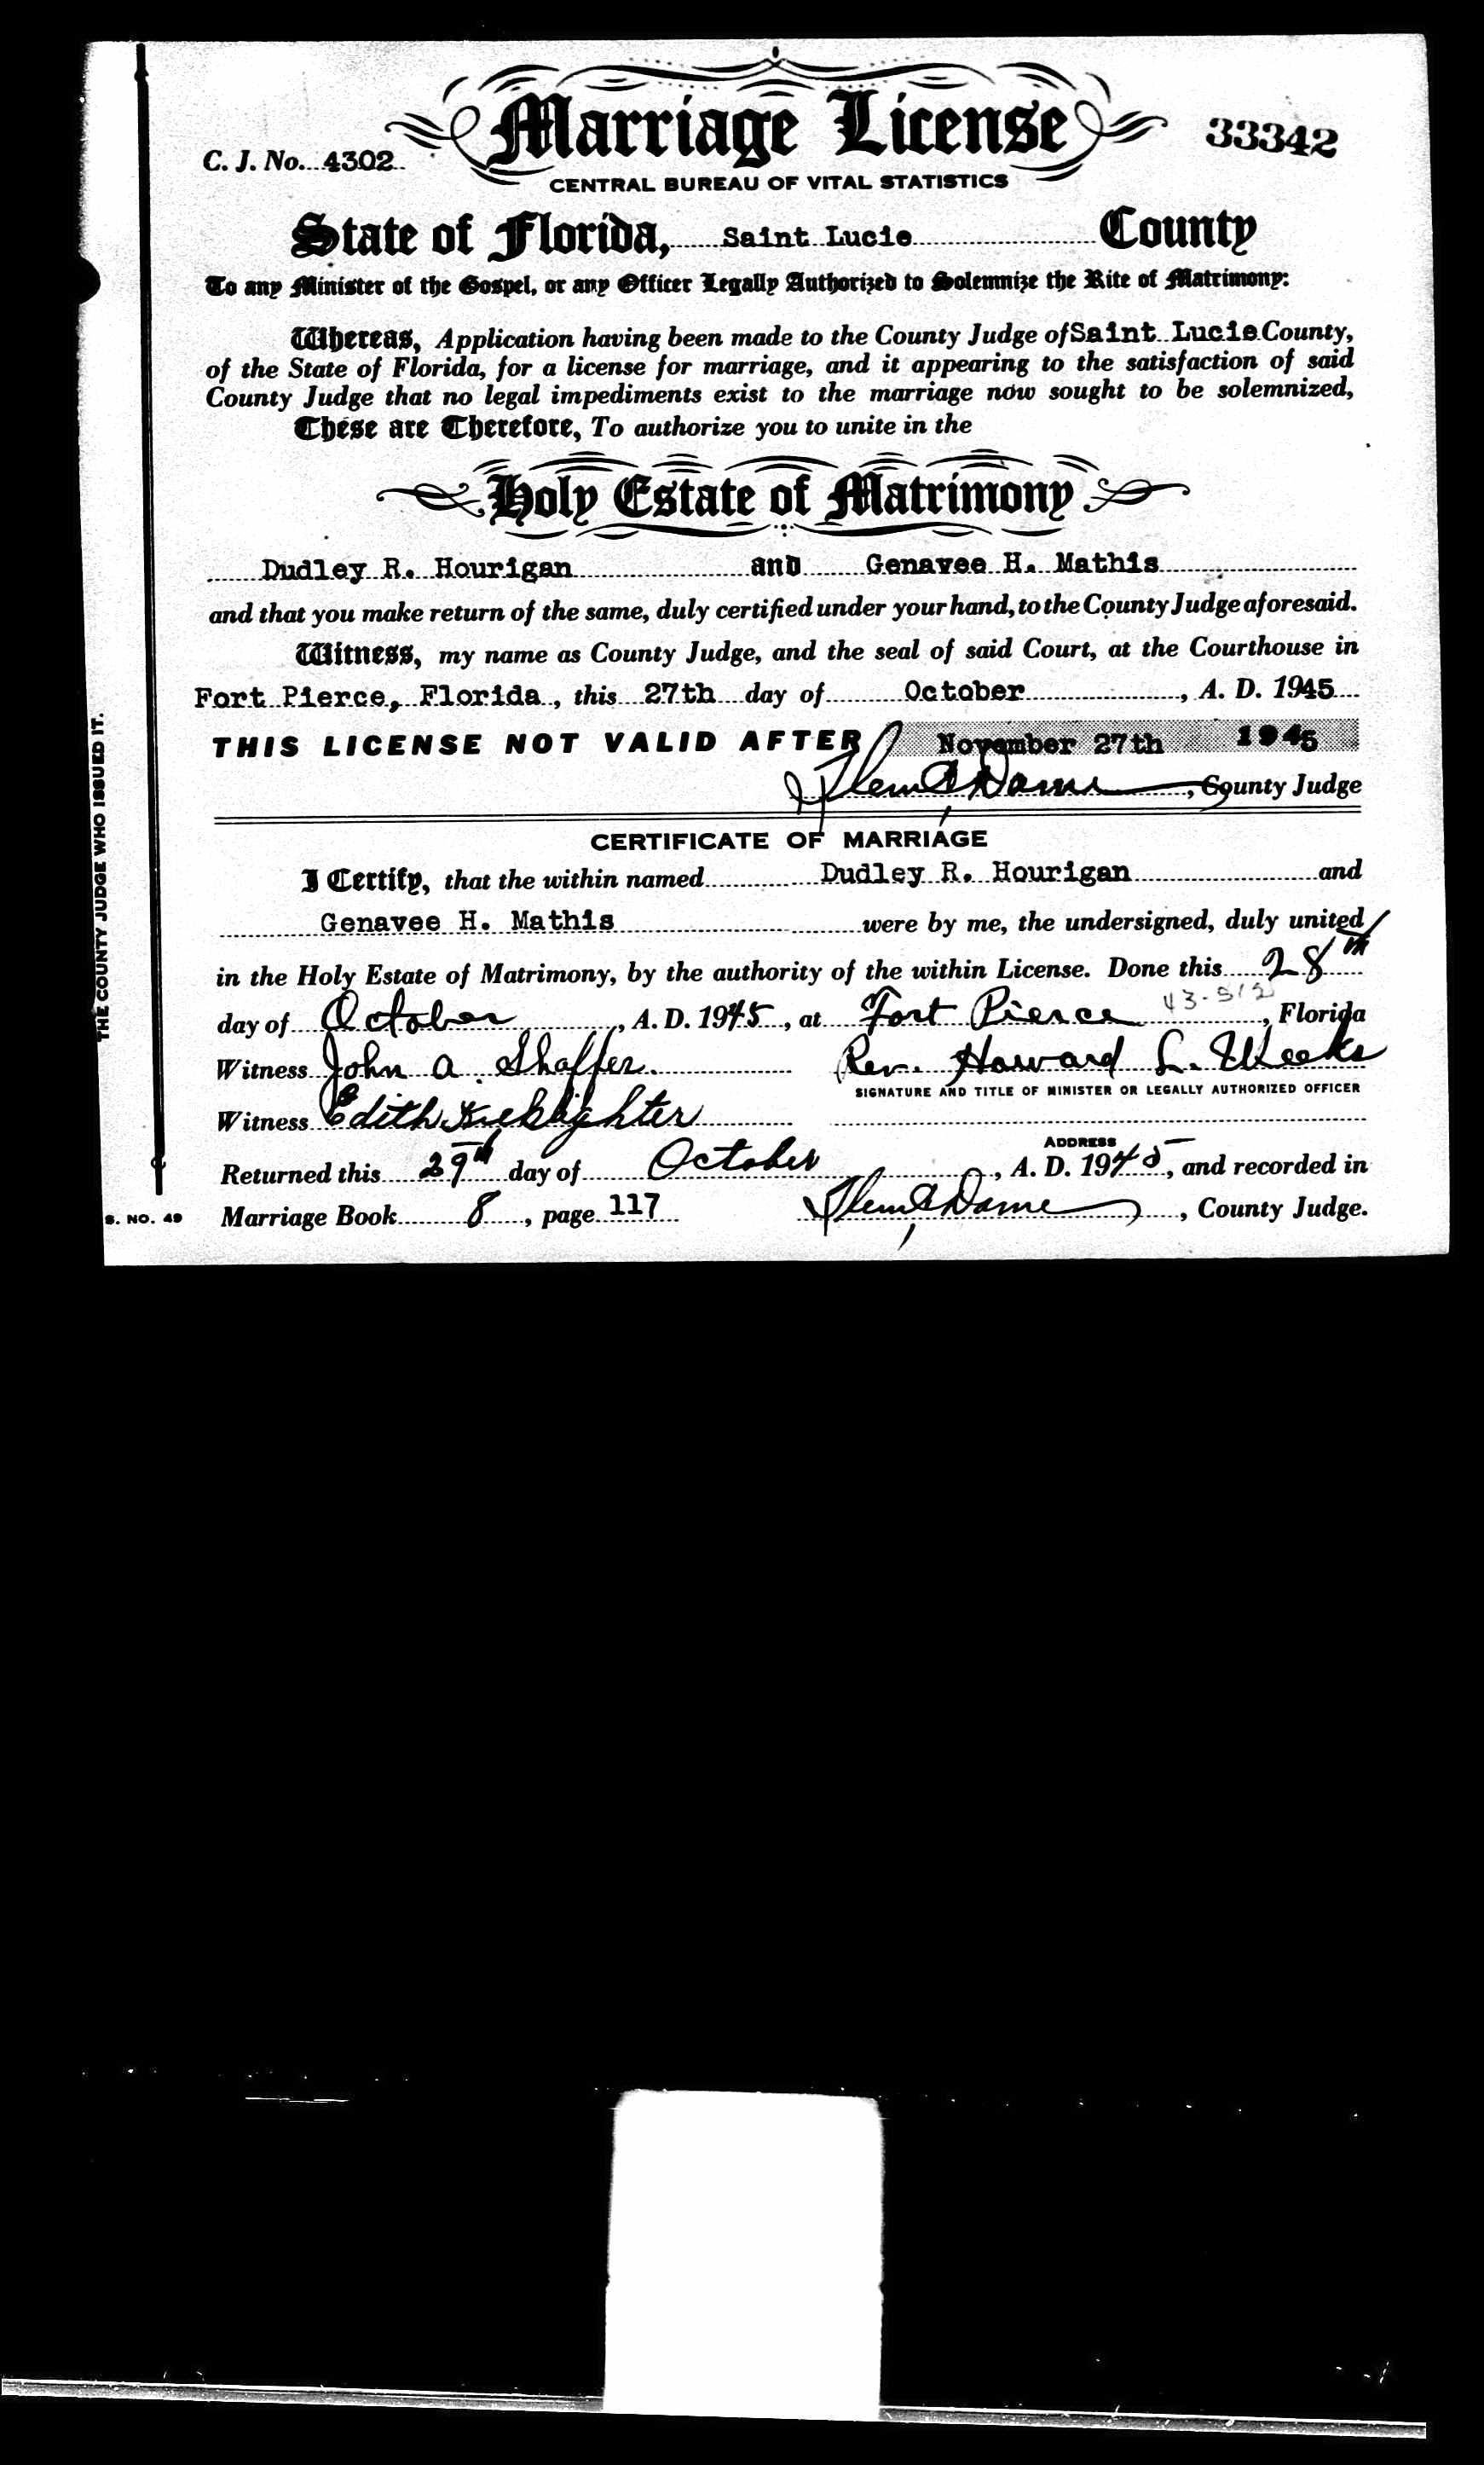 Marriage License
33342
C. J. No. 4302
CENTRAL BUREAU OF VITAL STATISTICS
State of Florida, Saint Lucie County
To any Minister of the Gospel, or any Officer Legally Authorized to Solemnize the Rite of Matrimony:
Whereas, Application having been made to the County Judge of Saint Lucie County,
of the State of Florida, for a license for marriage, and it appearing to the satisfaction of said
County Judge that no legal impediments exist to the marriage now sought to be solemnized,
These are Therefore, To authorize you to unite in the
Holy Estate of Matrimony
Dudley R. Hourigan and Genavee H. Mathis
and that you make return of the same, duly certified under your hand, to the County Judge aforesaid.
Witness, my name as County Judge, and the seal of said Court, at the Courthouse in
Fort Pierce, Florida, this 27th day of October, A. D. 1945
THIS LICENSE NOT VALID AFTER November 27th 1945
Flem C Dame, County Judge
CERTIFICATE OF MARRIAGE
I Certify, that the within named Dudley R. Hourigan and
Genavee H. Mathis were by me, the undersigned, duly united
in the Holy Estate of Matrimony, by the authority of the within License. Done this 28th
day of October, A. D. 1945, at Fort Pierce, Florida
Witness John A. Shaffer. Rev. Howard L. Weeks
SIGNATURE AND TITLE OF MINISTER OR LEGALLY AUTHORIZED OFFICER
Witness Edith
ADDRESS
Returned this 29th day of October, A. D. 1945, and recorded in
Marriage Book 8, page 117 Flem C Dame, County Judge.
THE COUNTY JUDGE WHO ISSUED IT.
S. NO. 49